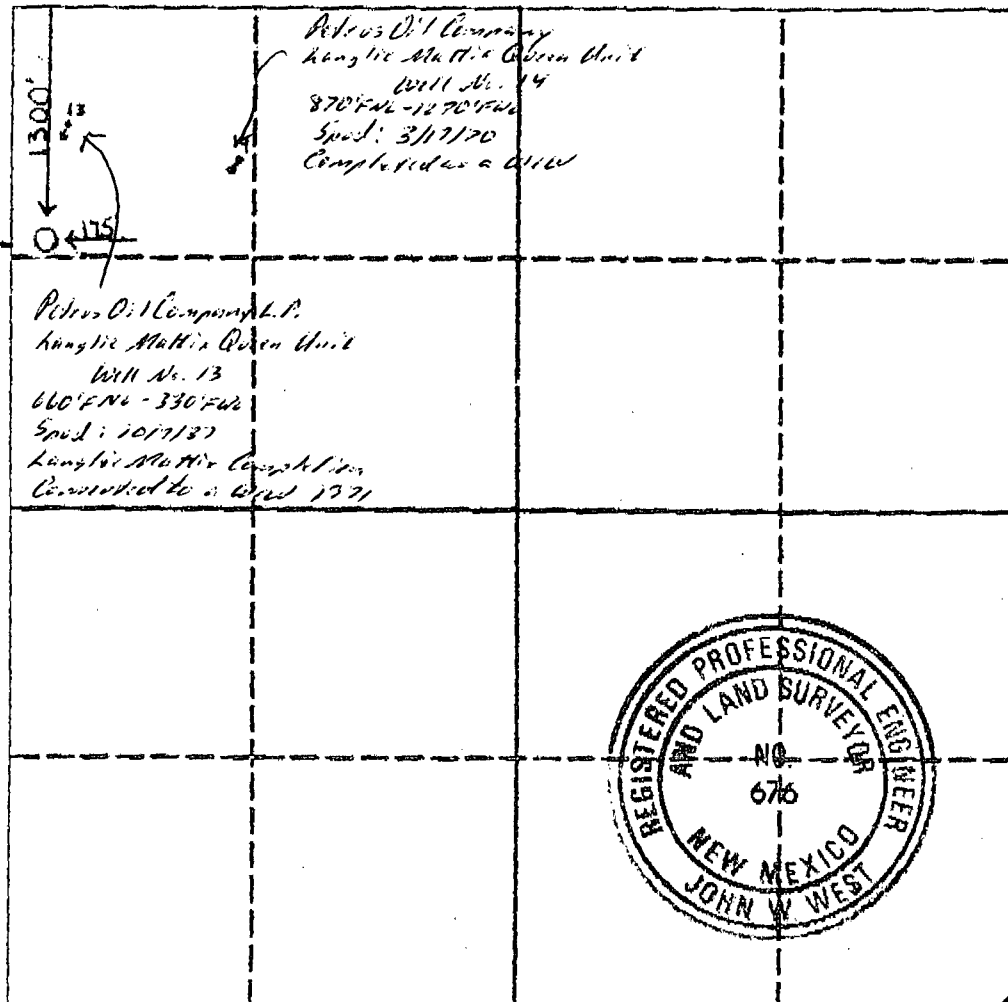 Petrus Oil Company
Langlie Mattix Queen Unit
Well No. 14
870'FNL-1270'FWL
Spud: 3/17/70
Completed as a WIW
1300'
#13
175
Petrus Oil Company L.P.
Langlie Mattix Queen Unit
Well No. 13
660'FNL - 330'FWL
Spud:
Langlie Mattix Completion
Converted to a WIW 1971
REGISTERED PROFESSIONAL ENGINEER
AND LAND SURVEYOR
NO.
676
NEW MEXICO
JOHN W. WEST